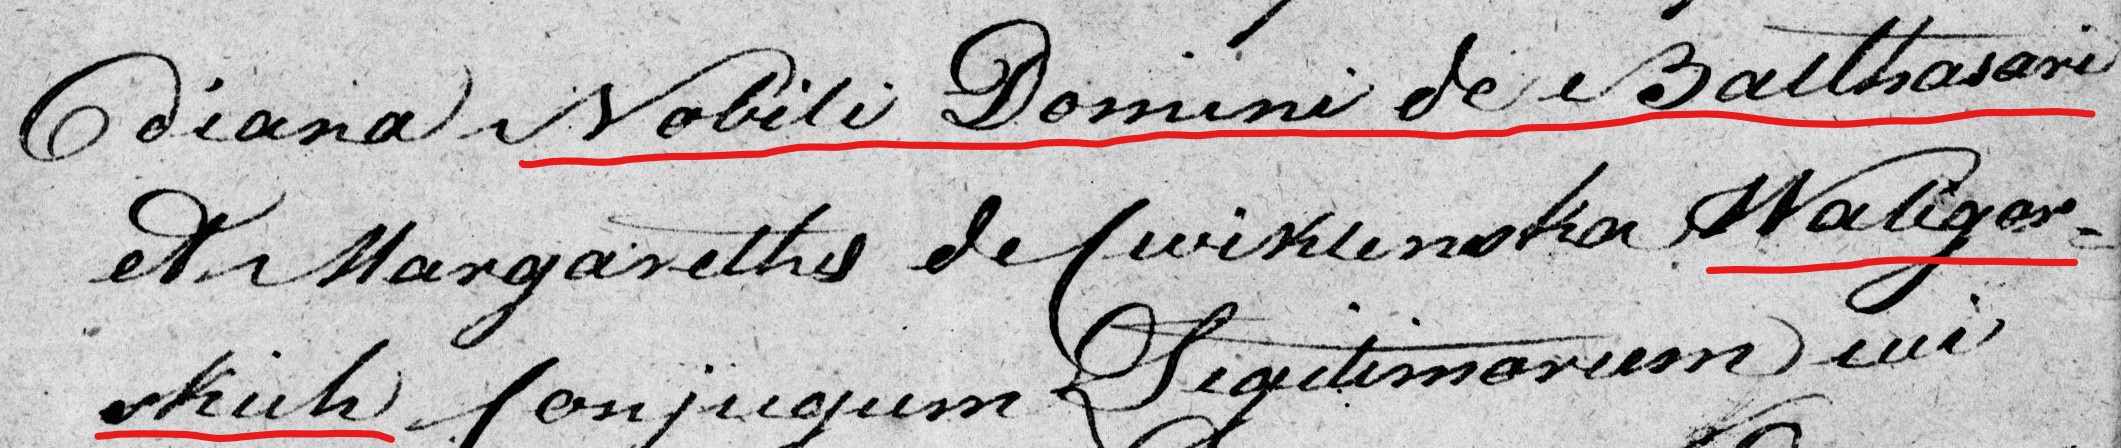 Diana Nobili Domini de Balthasari
et Margarethis de Cwiklenska Waligor-
skich Conjugum Legitimorum cui